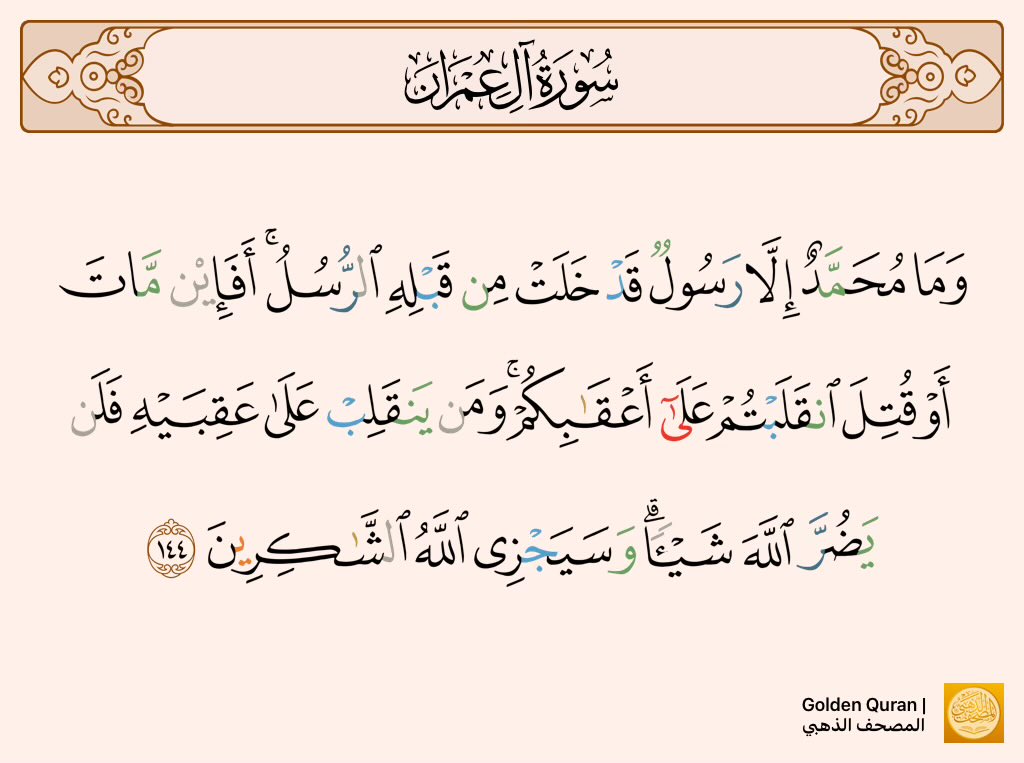 سُورَةُ آلِ عِمْرَانَ
وَمَا مُحَمَّدٌ إِلَّا رَسُولٌ قَدْ خَلَتْ مِن قَبْلِهِ ٱلرُّسُلُ ۚ أَفَإِي۟ن مَّاتَ
أَوْ قُتِلَ ٱنقَلَبْتُمْ عَلَىٰٓ أَعْقَـٰبِكُمْ ۚ وَمَن يَنقَلِبْ عَلَىٰ عَقِبَيْهِ فَلَن
يَضُرَّ ٱللَّهَ شَيْـًٔا ۗ وَسَيَجْزِى ٱللَّهُ ٱلشَّـٰكِرِينَ ١٤٤
Golden Quran |
المصحف الذهبي